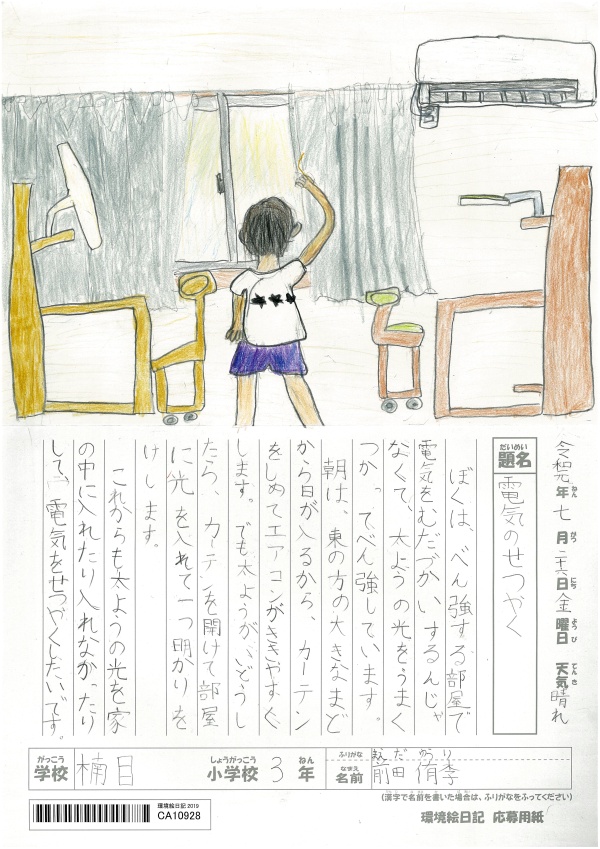 令和元年七月二十六日金曜日 天気晴れ
ねん がつ にち ようび てんき
だいめい
題名 電気のせつやく
ぼくは、べん強する部屋で
電気をむだづかいするんじゃ
なくて、太ようの光をうまく
つかってべん強しています。
朝は、東の方の大きなまど
から日が入るから、カーテン
をしめてエアコンがききやすく
します。でも太ようが、いどうし
たら、カーテンを開けて部屋
に光を入れて一つ明かりを
けします。
これからも太ようの光を家
の中に入れたり入れなかったり
して、電気をせつやくしたいです。
がっこう しょうがっこう ねん
学校 楠目 小学校 3 年
ふりがな まえだ ゆうり
なまえ
名前 前田 侑李
(漢字で名前を書いた場合は、ふりがなをふってください)
環境絵日記 2019
CA10928
環境絵日記 応募用紙